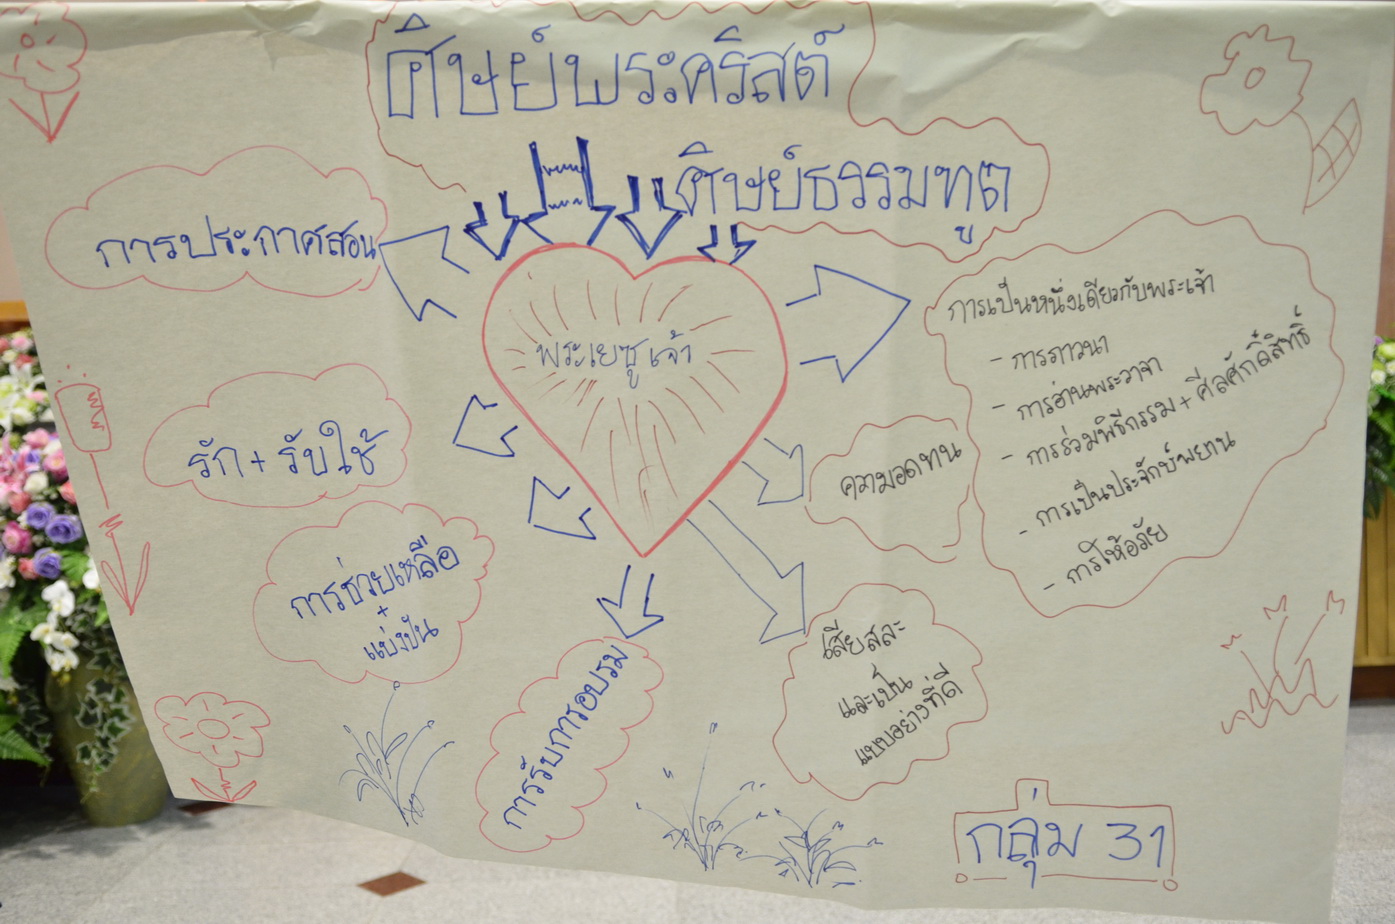 ศิษย์พระคริสต์
ศิษย์ธรรมทูต
พระเยซูเจ้า
การประกาศสอน
รัก + รับใช้
การช่วยเหลือ
+
แบ่งปัน
การรับการอบรม
เสียสละ
และเป็น
แบบอย่างที่ดี
ความอดทน
การเป็นหนึ่งเดียวกับพระเจ้า
- การภาวนา
- การอ่านพระวาจา
- การร่วมพิธีกรรม + ศีลศักดิ์สิทธิ์
- การเป็นประจักษ์พยาน
- การให้อภัย
กลุ่ม 31